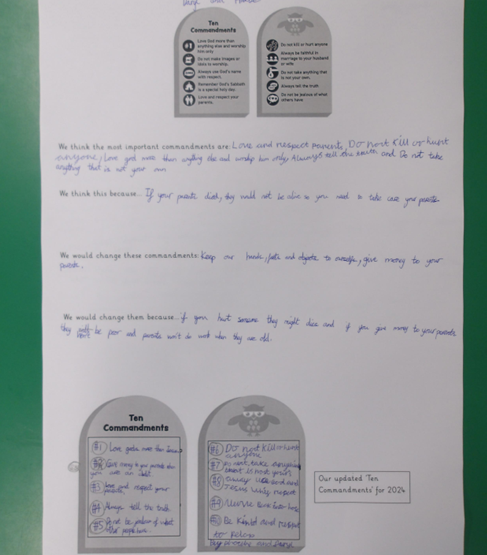 Ten
Commandments
Love God more than
anything else and worship
him only
Do not make images or
idols to worship.
Always use God's name
with respect.
Remember God's Sabbath
is a special holy day
Love and respect your
parents.
Do not kill or hurt anyone
Always be faithful in
marriage to your husband
or wife
Do not take anything that
is not your own.
Always tell the truth
Do not be jealous of what
others have
We think the most important commandments are: Love and respect parents, Do not kill or hurt
anyone, Love god more than anything else and worship him only, Always tell the and Do not take
anything that is not your own
We think this because... If your parents died, they would not be alive so you need to take care your parents
We would change these commandments: Keep our hands, and to ourselfs, give money to your
parents.
We would change them because... if you hurt someone they might and if you give money to your parents
they be poor and parents won't do work when they are old.
Ten
Commandments
#1 Love more than
money to you parents who
debt
Love and respect your
parents.
#4 Always tell the truth
#5 Do not be jealous of what
people have.
#6 Do not kill or hurt
anyone
#7 Do not take anything
is not your
#8 and
Jesus with respect
#9
Be kind and respect
to
and
Our updated Ten
Commandments for 2024